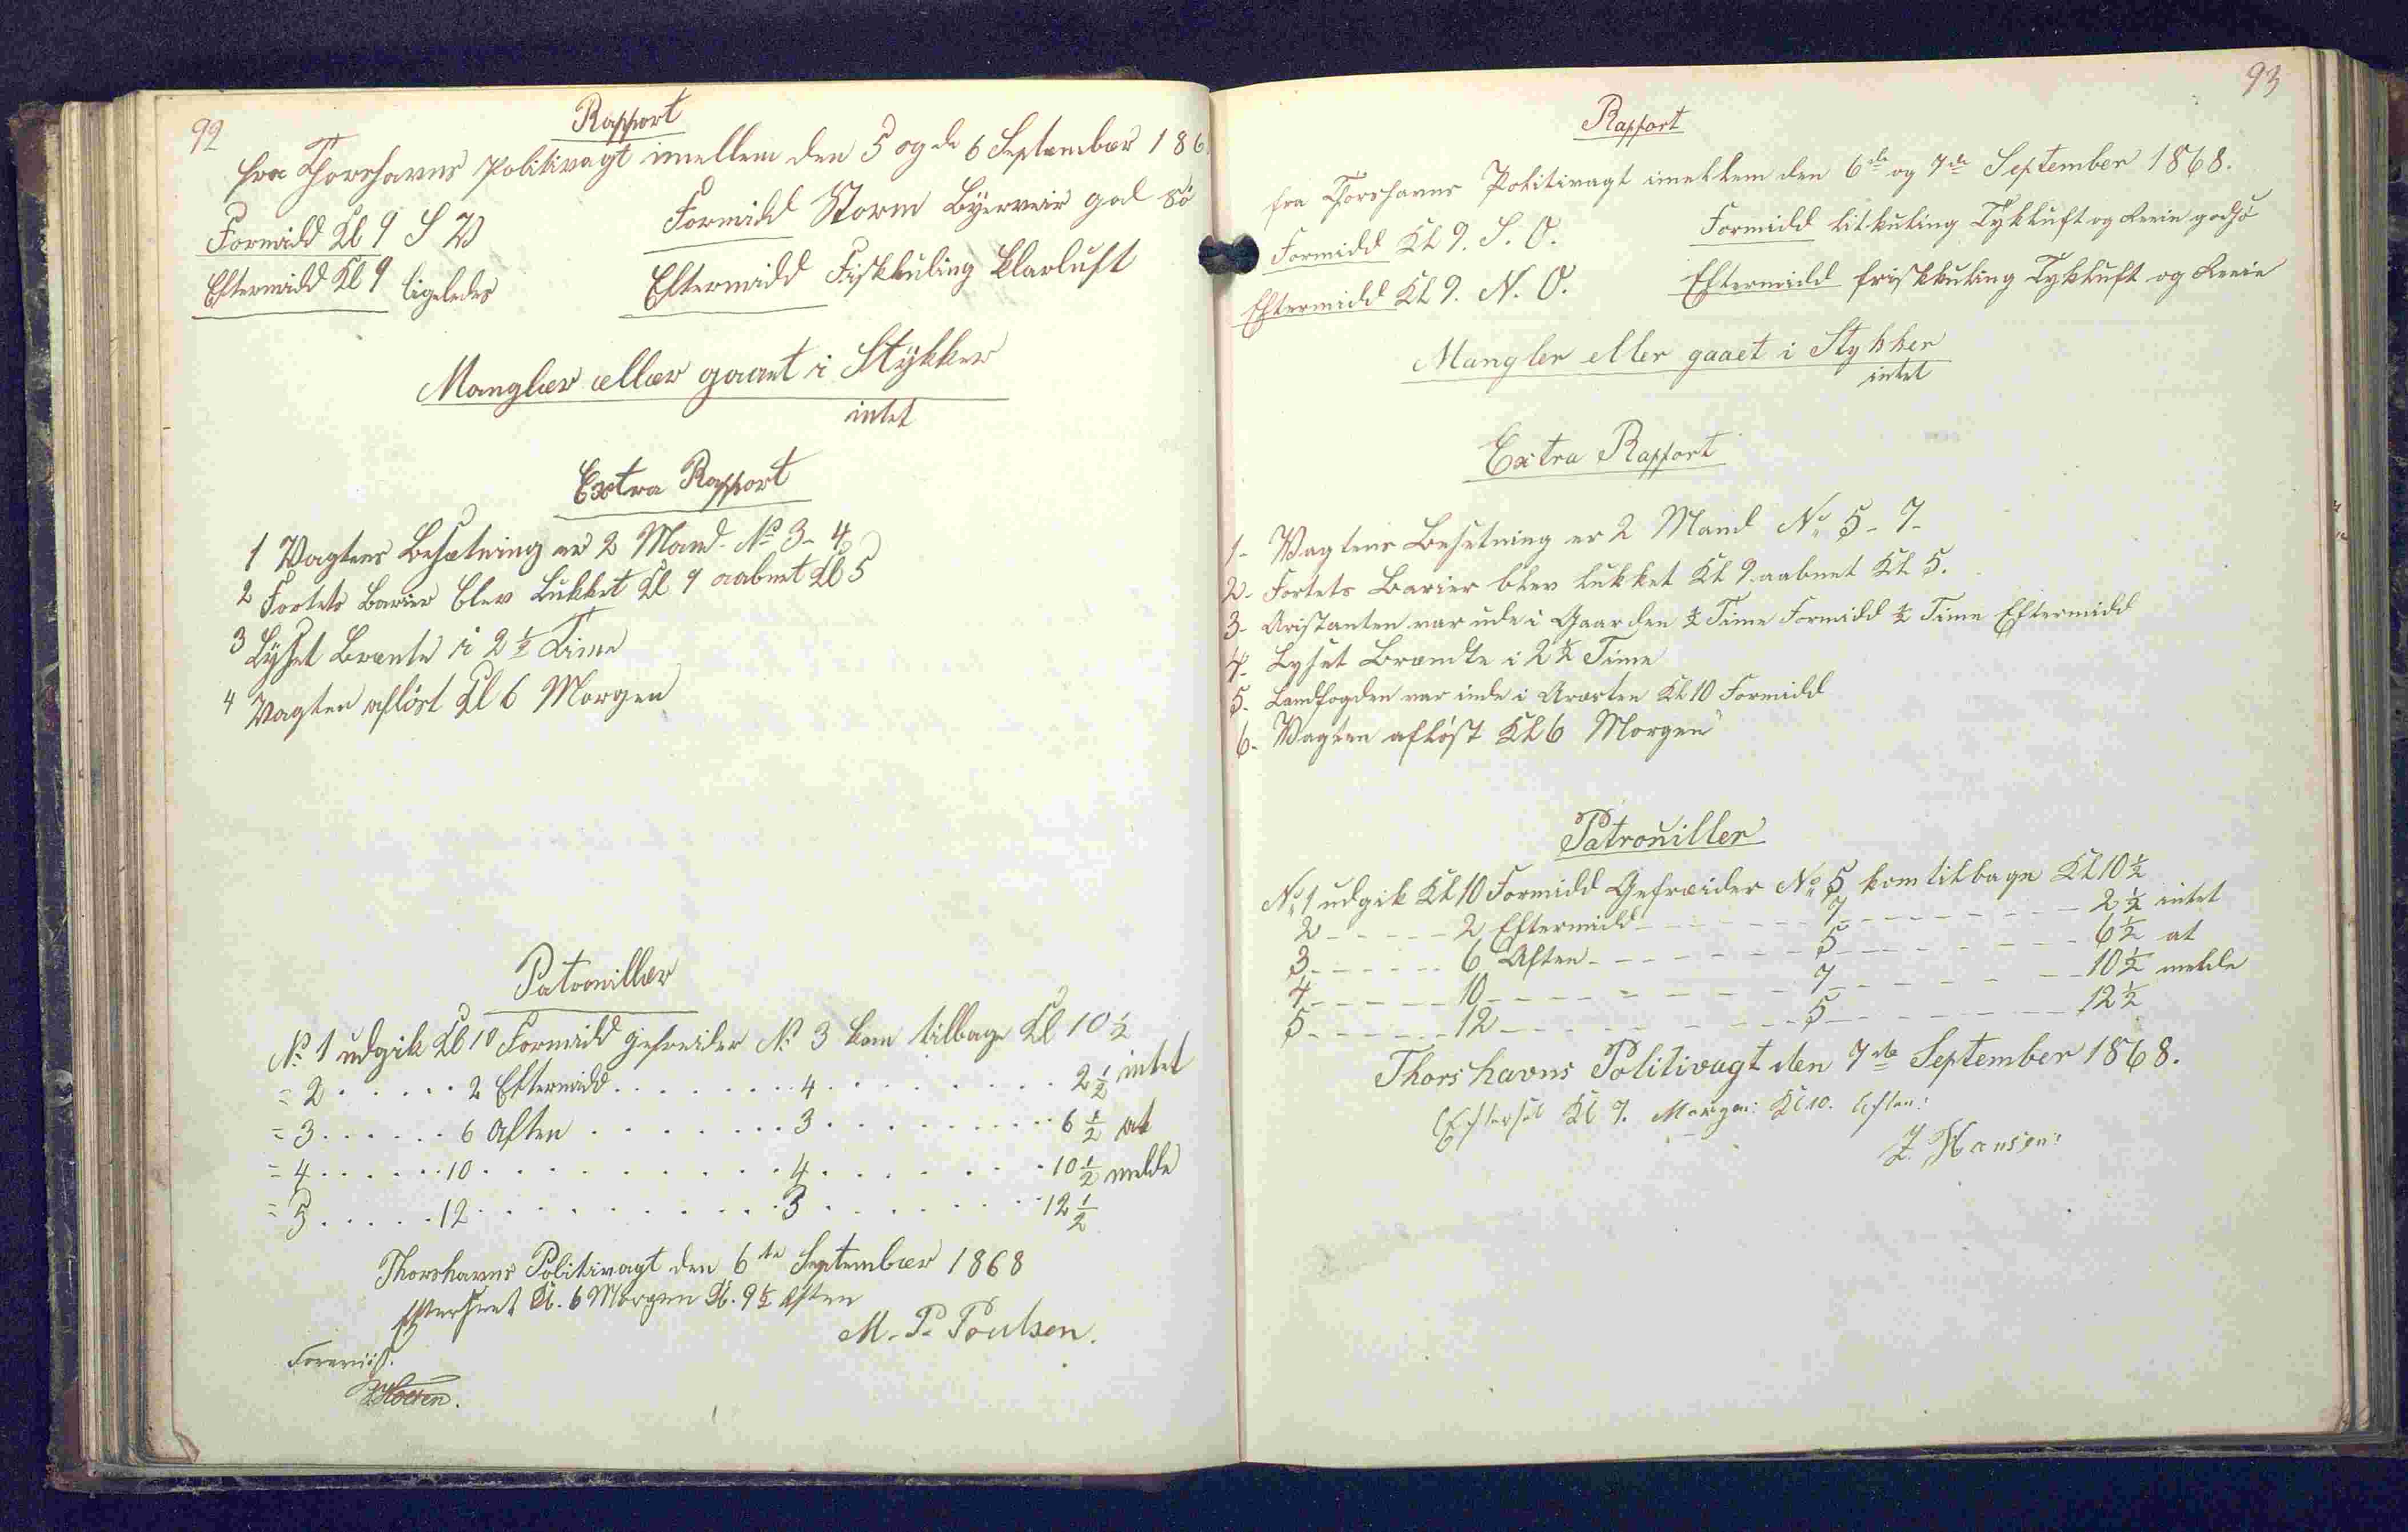 92
Rapport
fra Thorshavns Politivagt imellem den 5 og de 6 September 186
Formidd Kl 9 S V
Formidd Storm Byerveir god Sö
Eftermidd Kl 9 ligeledes
Eftermidd Fiskkuling Klarluft
Manglær ællær gaaet i Stykker
intet
Extra Rapport
1 Vagtens Besætning er 2 Mand. No 3-4
2 Fortets Barier blev Lukket Kl 9 aabnet Kl 5
3 Lyset Brænte i 2 1/2 Time
4 Vagten aflöst Kl 6 Morgen
Patrouillær
No 1 udgik Kl 10 Formidd gefreider No 3 kom tilbage Kl 10 1/2
= 2 . . . . . 2 Eftermidd . . . . . . . 4 . . . . . . . . . 2 1/2 intet
= 3 . . . . . . 6 Aften . . . . . . . . 3 . . . . . . . . . 6 1/2 at
= 4 . . . . . . 10 . . . . . . . . . . . 4 . . . . . . . 10 1/2 melde
= 5 . . . . . 12 . . . . . . . . . . . 3 . . . . . . . 12 1/2
Thorshavns Politivagt den 6te Septembær 1868
Efterseet Kl. 6 Morgen Kl. 9 1/2 Aften
M. P. Poulsen.
Foreviist.
93
Rapport
fra Thorshavns Politivagt imellem den 6de og 7de September 1868.
Formidd Kl 9. S. O.
Formidd litkuling Tykluft og Rein godsö
Eftermidd Kl 9. N. O.
Eftermidd friskkuling Tykluft og Rein
Mangler eller gaaet i Stykker
intet
Extra Rapport
1- Vagtens Besetning er 2 Mand No 5-7-
2- Fortets Barier blev lukket Kl 9. aabnet Kl 5.
3- Aristanten var ude i Gaarden 1/2 Time Formidd 1/2 Time Eftermidd
4- Lyset Brændte i 2 1/2 Time
5- Landfogden var inde i Aræsten Kl 10 Formidd
6- Vagten aflöst Kl 6 Morgen
Patrouiller
No 1 udgik Kl 10 Formidd Gefræider No 5 kom tilbage Kl 10 1/2
2 - - - - - - 2 Eftermidd - - - - - - - 7 - - - - - - - - - 2 1/2 intet
3 - - - - - - 6 Aften - - - - - - - 5 - - - - - - - - 6 1/2 at
4 - - - - - - 10 - - - - - - - - - 7 - - - - - - - 10 1/2 melde
5 - - - - - - 12 - - - - - - - - - 5 - - - - - - - - 12 1/2
Thorshavns Politivagt den 7de September 1868.
Efterset Kl 7. Morgen: Kl 10. Aften:
Z. Hansen: